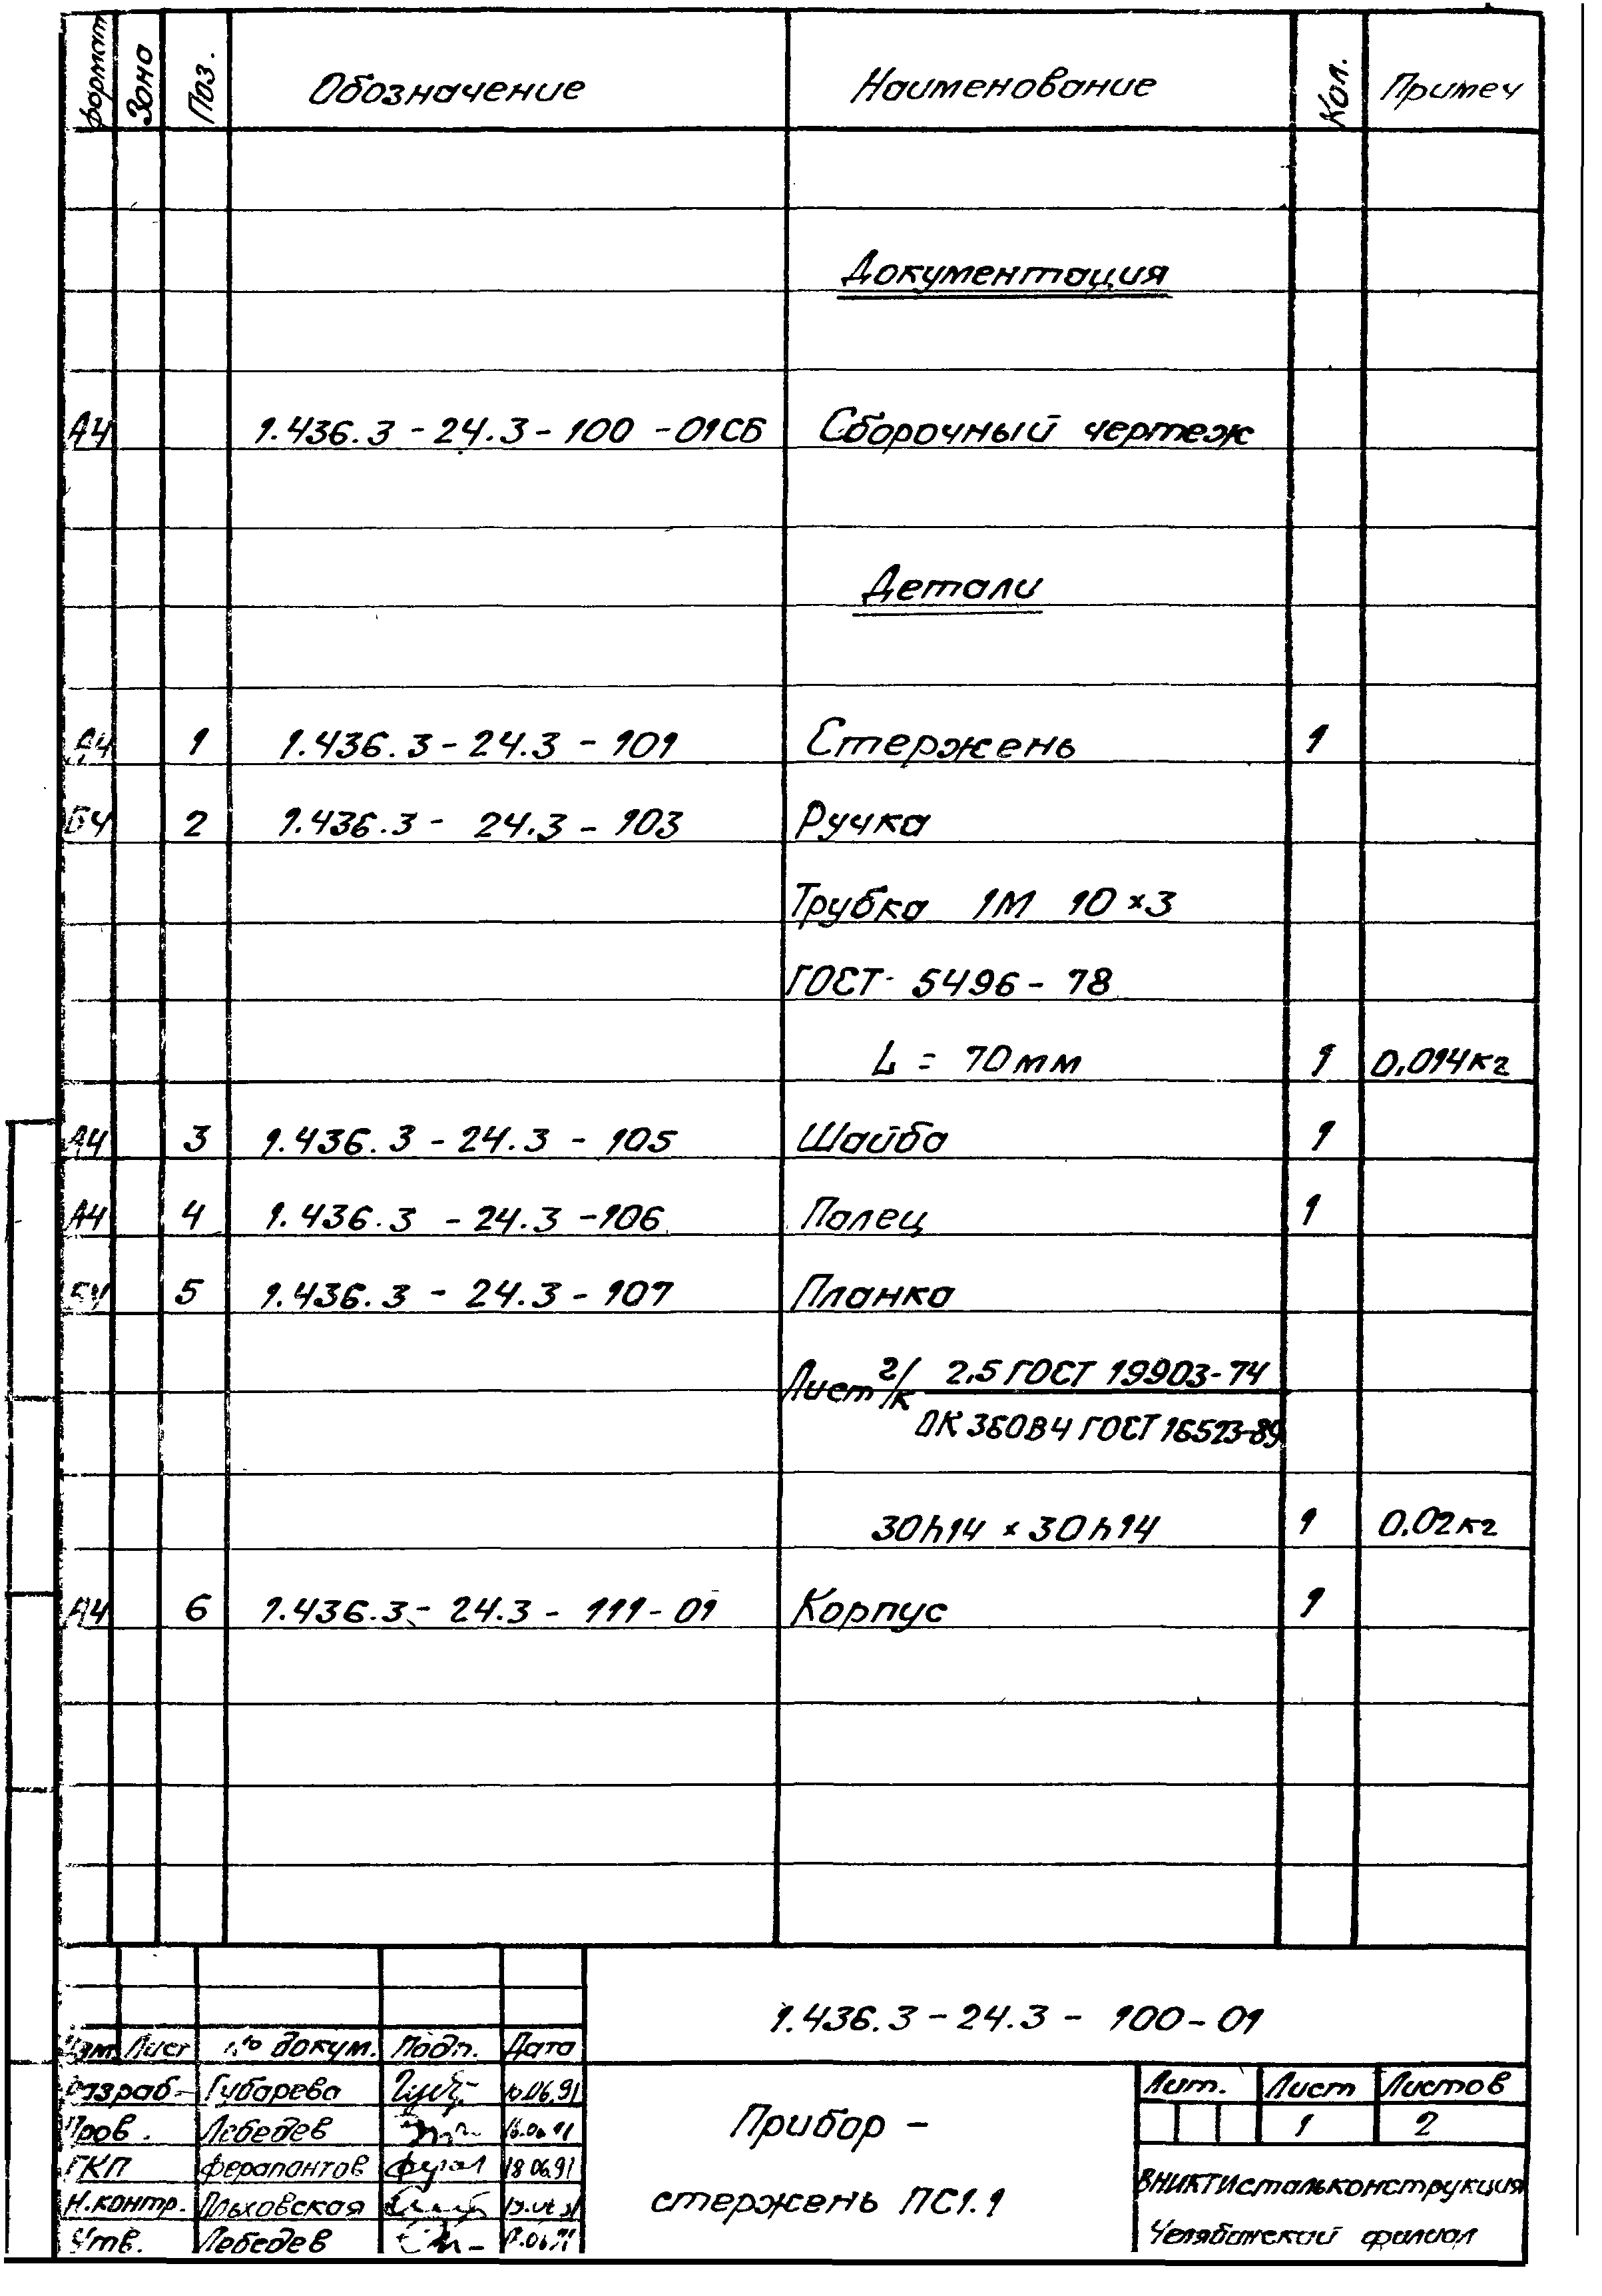 формат Зона Поз. Обозначение Наименование Кол. Примеч
Документация
А4 1.436.3-24.3-100-01СБ Сборочный чертеж
Детали
А4 1 1.436.3-24.3-101 Стержень 1
БЧ 2 1.436.3-24.3-103 Ручка
Трубка 1М 10×3
ГОСТ 5496-78
L = 70мм 1 0,014кг
А4 3 1.436.3-24.3-105 Шайба 1
А4 4 1.436.3-24.3-106 Палец 1
БЧ 5 1.436.3-24.3-107 Планка
Лист г/к 2,5 ГОСТ 19903-74
ОК 360В4 ГОСТ 16523-89
30h14 × 30h14 1 0.02кг
А4 6 1.436.3-24.3-111-01 Корпус 1
1.436.3-24.3-100-01
Изм. Лист № докум. Подп. Дата
Разраб. Губарева 10.06.91
Пров. Лебедев
ГКП Ферапонтов 18.06.91
Н.контр. Пльховская
Утв. Лебедев
Прибор -
стержень ПС1.1
Лит. Лист Листов
1 2
ВНИКТИстальконструкция
Челябинский филиал